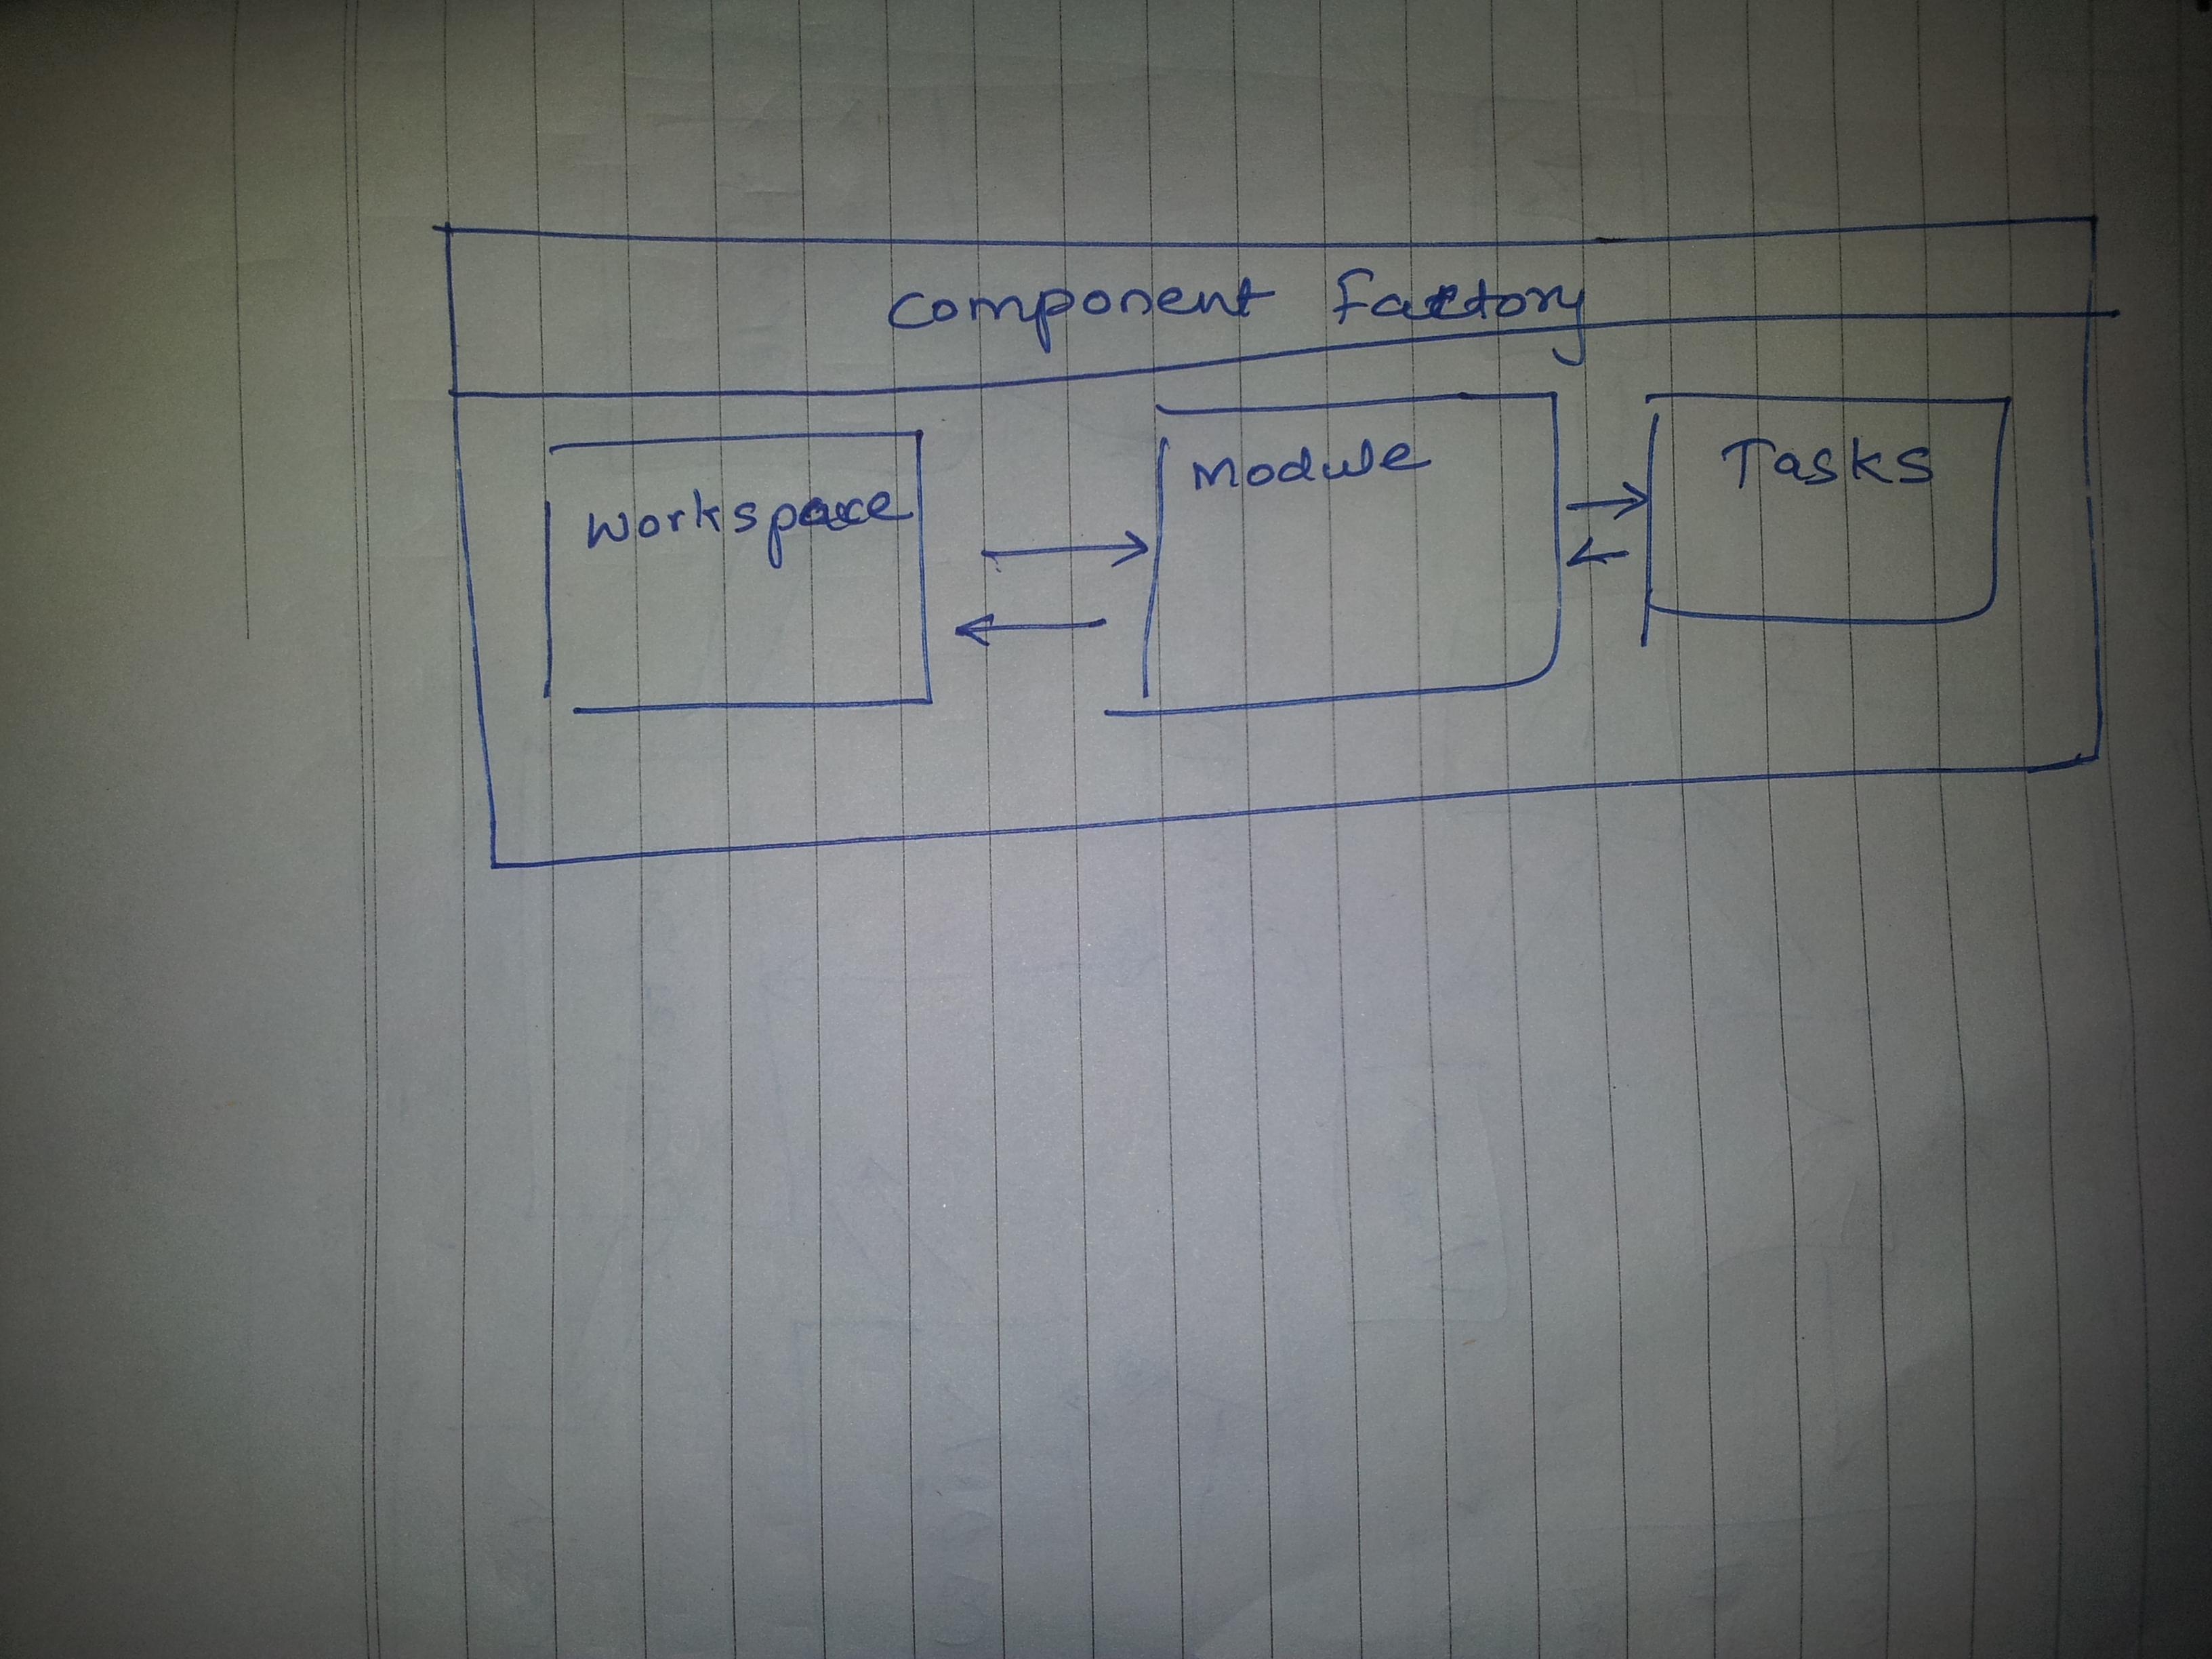 Component Factory
Workspace
Module
Tasks